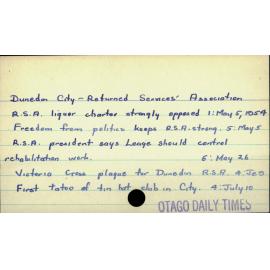 Dunedin City - Returned Services' Association
R.S.A. liquor charter strongly opposed 1: May 5, 1954
Freedom from politics keeps R.S.A. strong. 5: May 5
R.S.A. president says League should control
rehabilitation work. 6: May 26
Victoria Cross plaque for Dunedin R.S.A. 4:
First Tatoo of tin hat club in City. 4: July 10
OTAGO DAILY TIMES